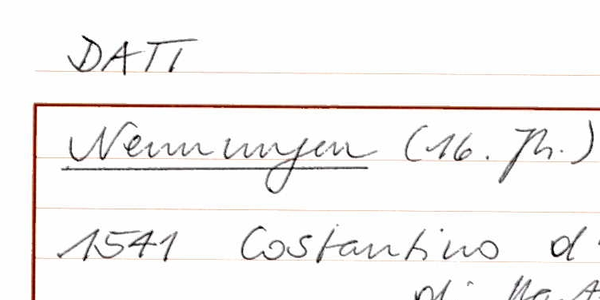 DATI
Nennungen (16. Jh.)
1541 Costantino d'
di